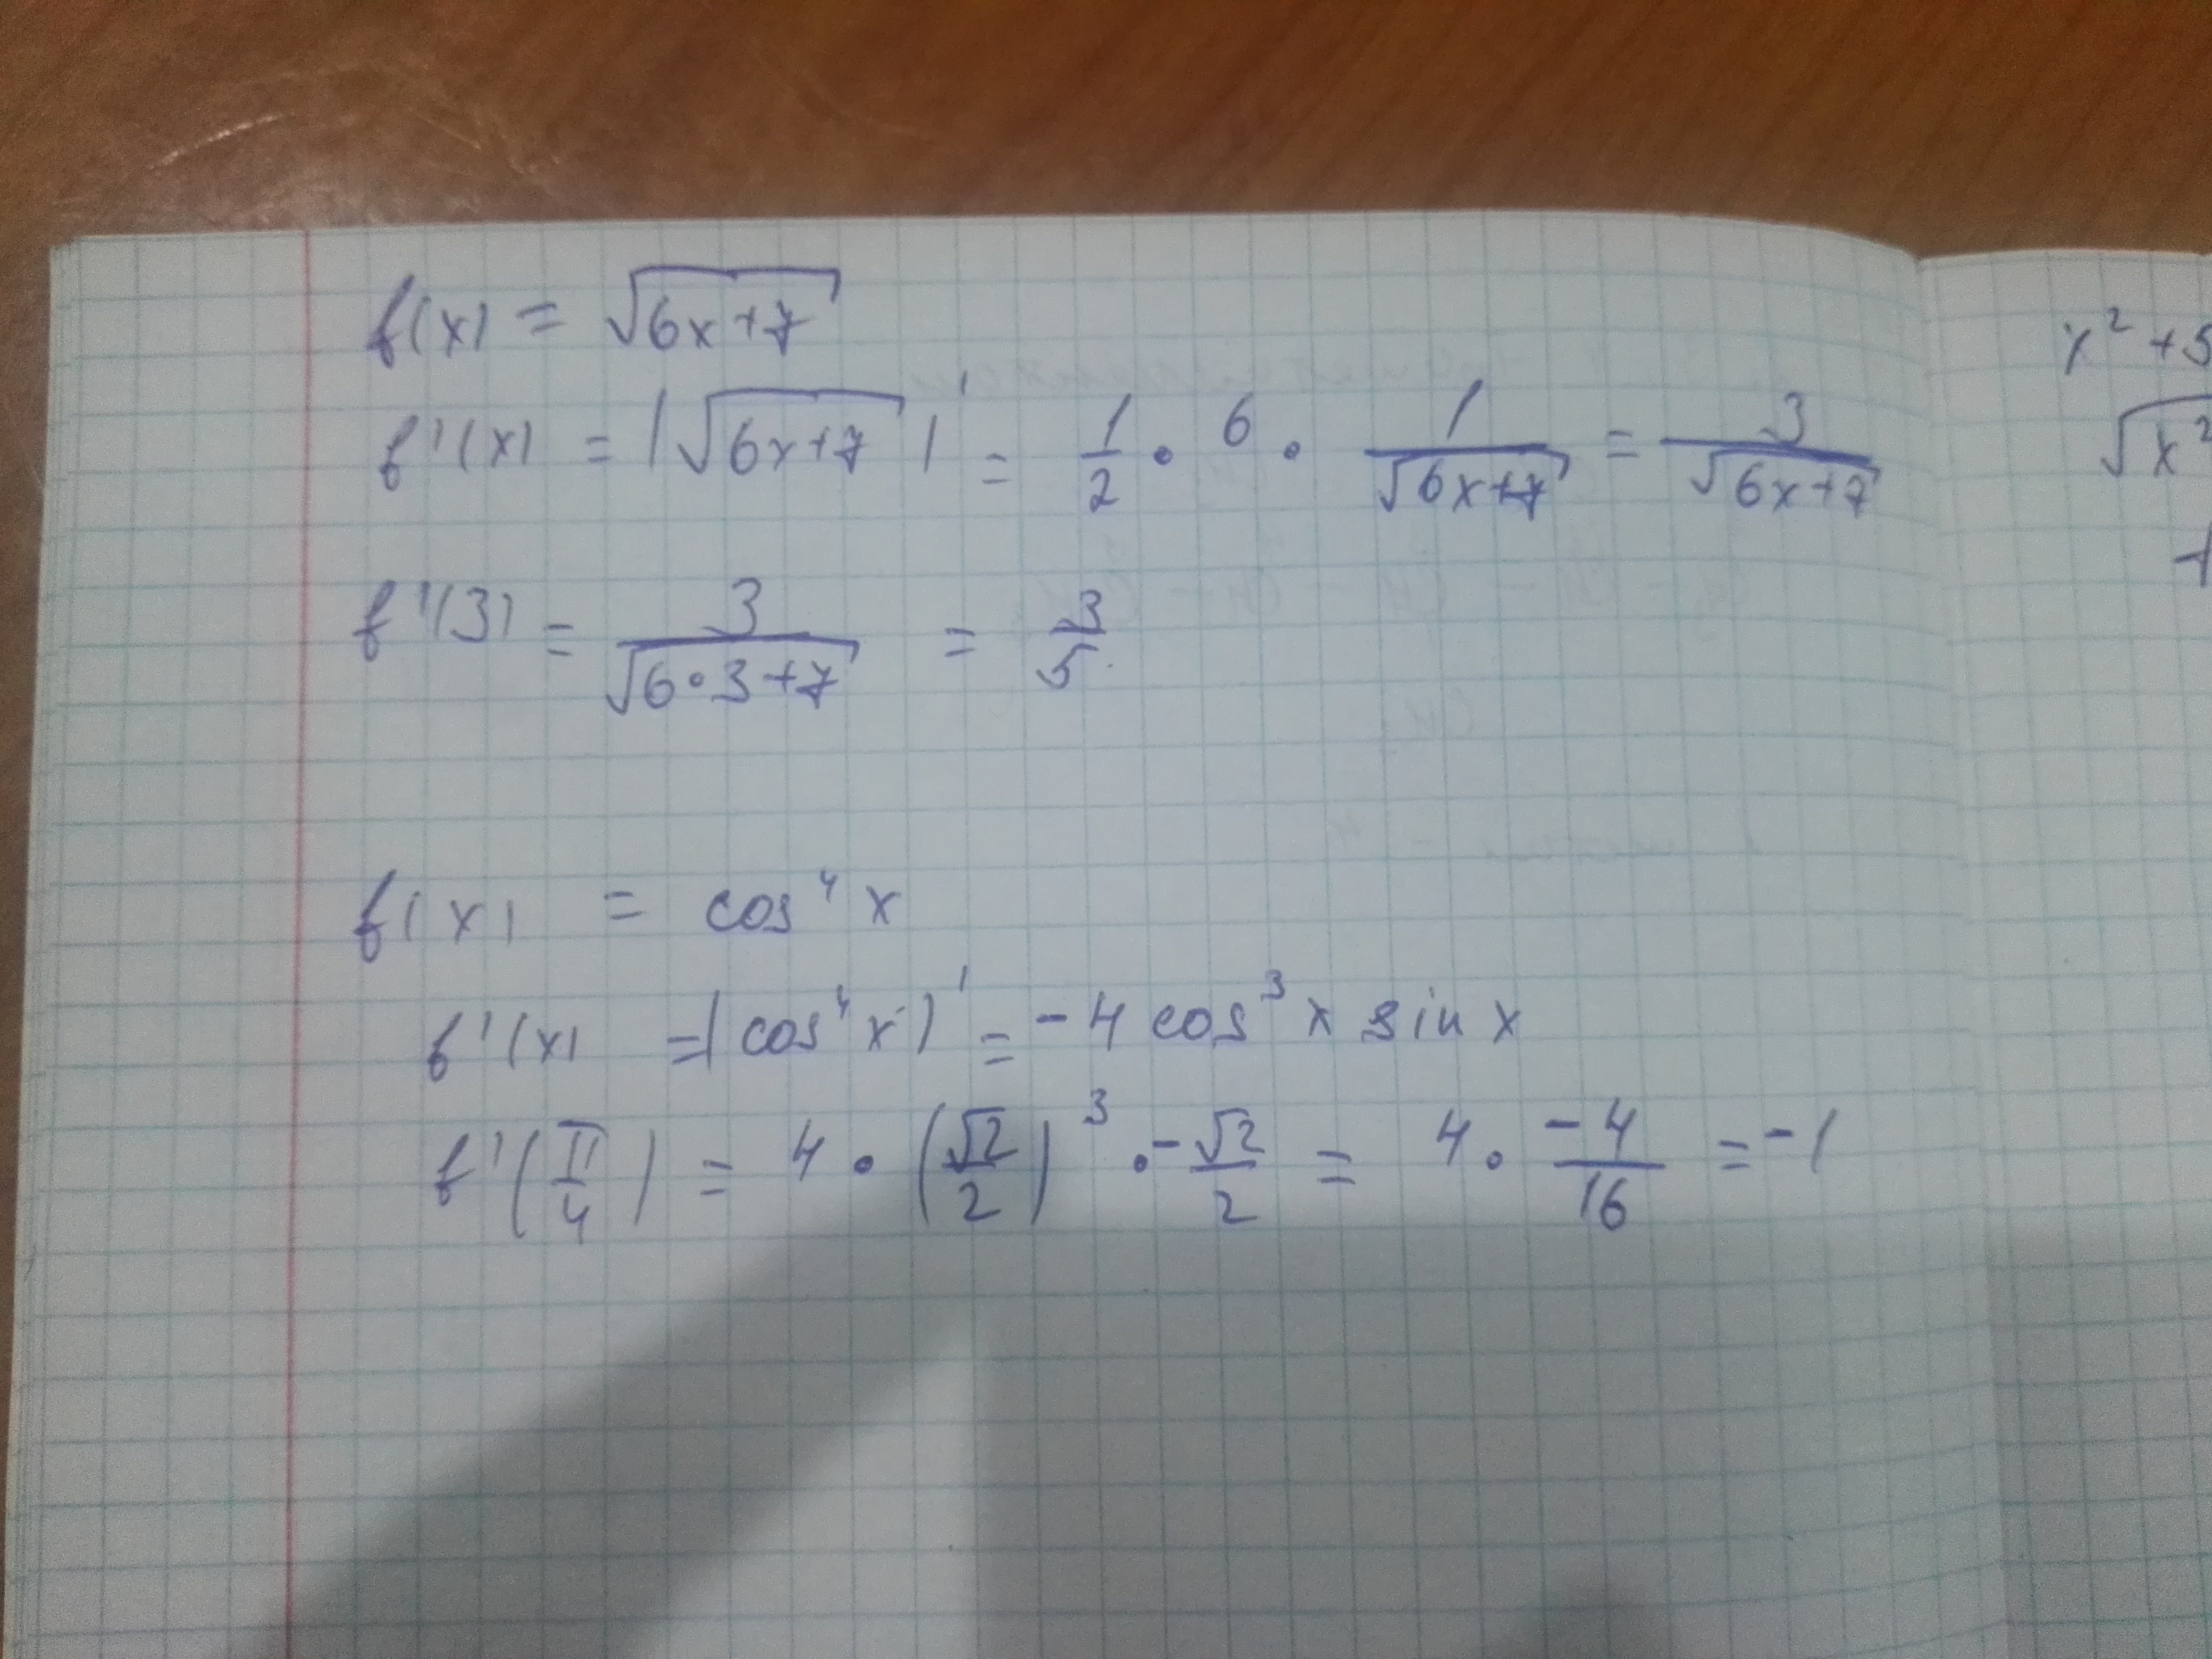 f(x) = √(6x+7)
f'(x) = (√(6x+7))' = 1/2 · 6 · 1/√(6x+7) = 3/√(6x+7)
f'(3) = 3/√(6·3+7) = 3/5
f(x) = cos⁴ x
f'(x) = (cos⁴ x)' = -4 cos³ x sin x
f'(π/4) = 4 · (√2/2)³ · -√2/2 = 4 · -4/16 = -1
x² +
√x²